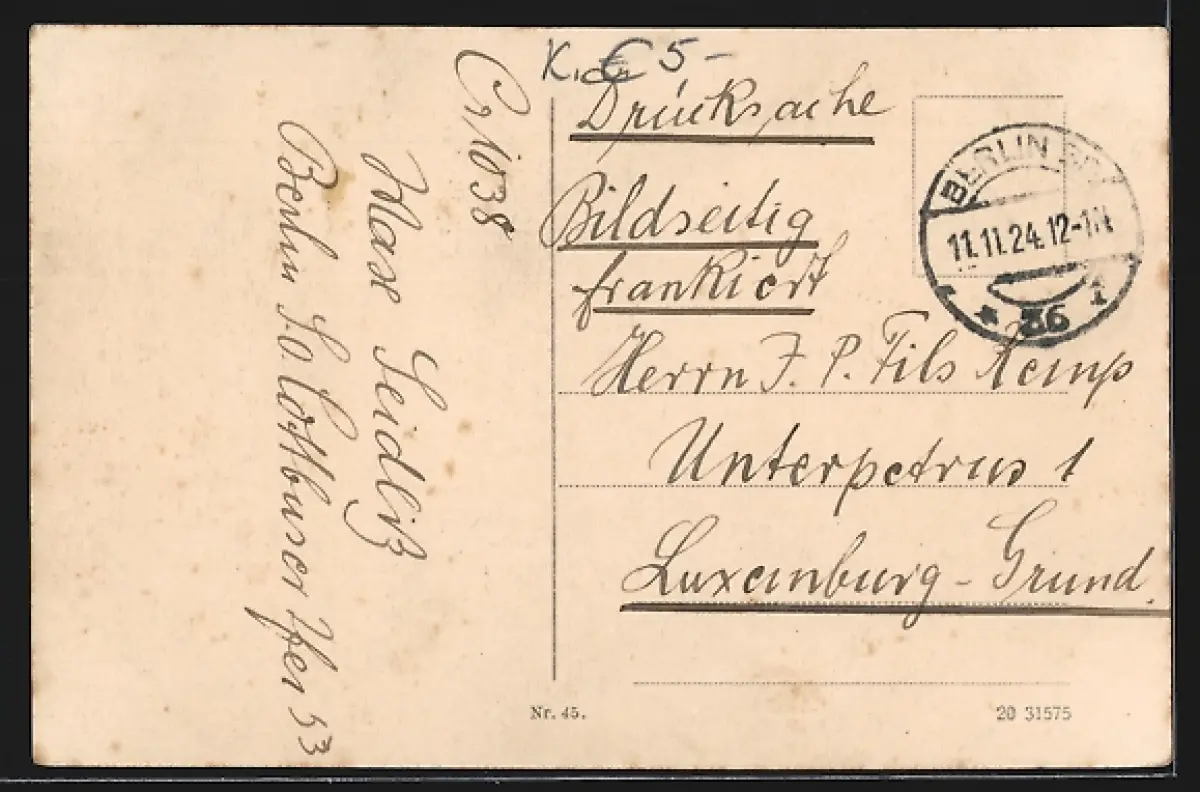 € 5-
Drucksache
Bildseitig
frankiert
Herrn J. P. Fils Kemp
Unterpetrus 1
Luxemburg - Grund.
No 38
Max Seidlitz
Berlin S.O. Cottbuser Ufer 53
BERLIN
11.11.24.12-1N
* 36 1
Nr. 45.
20 31575